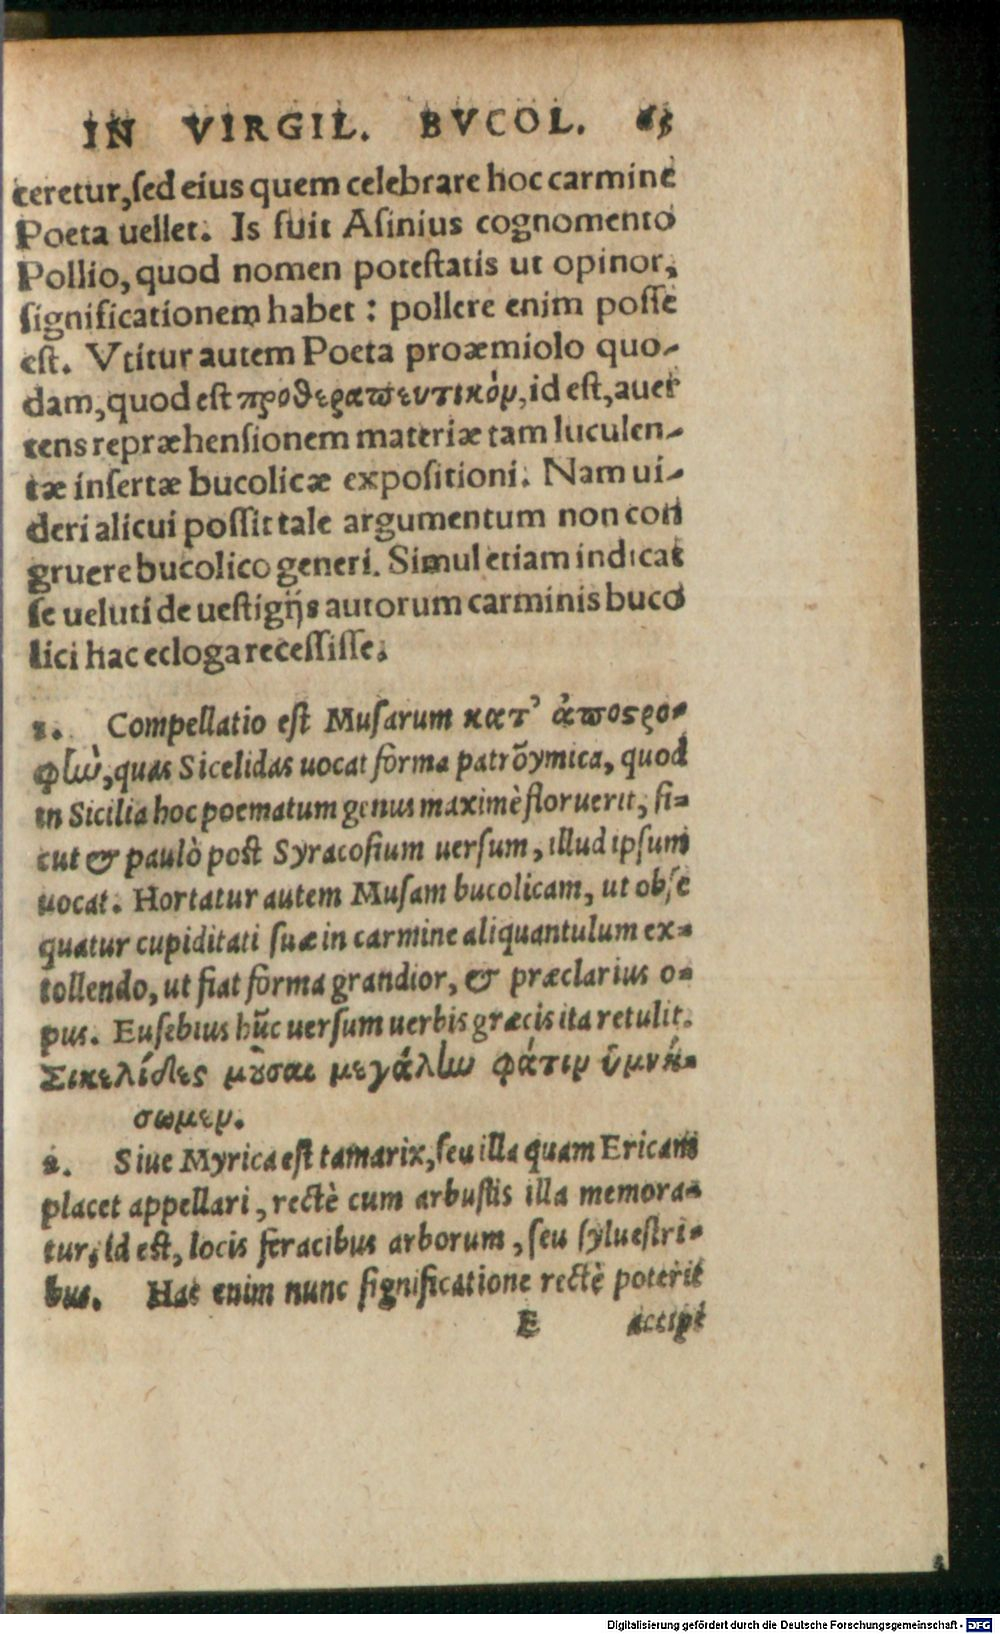 IN VIRGIL. BVCOL. 65
ceretur, sed eius quem celebrare hoc carmine
Poeta uellet. Is fuit Asinius cognomento
Pollio, quod nomen potestatis ut opinor,
significationem habet : pollere enim posse
est. Vtitur autem Poeta proæmiolo quo-
dam, quod est προθεραπευτικὸν, id est, auer
tens repræhensionem materiæ tam luculen-
tæ insertæ bucolicæ expositioni. Nam ui-
deri alicui possit tale argumentum non con
gruere bucolico generi. Simul etiam indicat
se ueluti de uestigijs autorum carminis buco
lici hac ecloga recessisse.
1. Compellatio est Musarum κατ’ ἀποστρο-
φὴν, quas Sicelidas uocat forma patrõymica, quod
in Sicilia hoc poematum genus maximè floruerit, si-
cut & paulò post Syracosium uersum, illud ipsum
uocat. Hortatur autem Musam bucolicam, ut obse
quatur cupiditati suæ in carmine aliquantulum ex-
tollendo, ut fiat forma grandior, & præclarius o-
pus. Eusebius hũc uersum uerbis græcis ita retulit.
Σικελίδες μοῦσαι μεγάλην φάτιν ὑμνή-
σωμεν.
2. Siue Myrica est tamarix, seu illa quam Ericam
placet appellari, rectè cum arbustis illa memora-
tur, id est, locis feracibus arborum, seu syluestri-
bus. Hac enim nunc significatione rectè poterit
E accipi
Digitalisierung gefördert durch die Deutsche Forschungsgemeinschaft - DFG